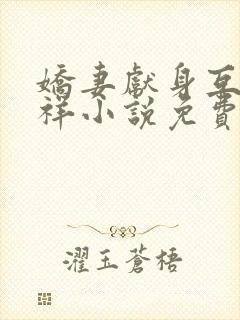 嬌妻獻身互
祥小說免費
濯玉蒼梧